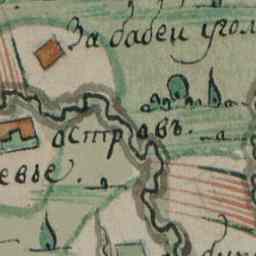 За бабеи угол
островъ.
евье.